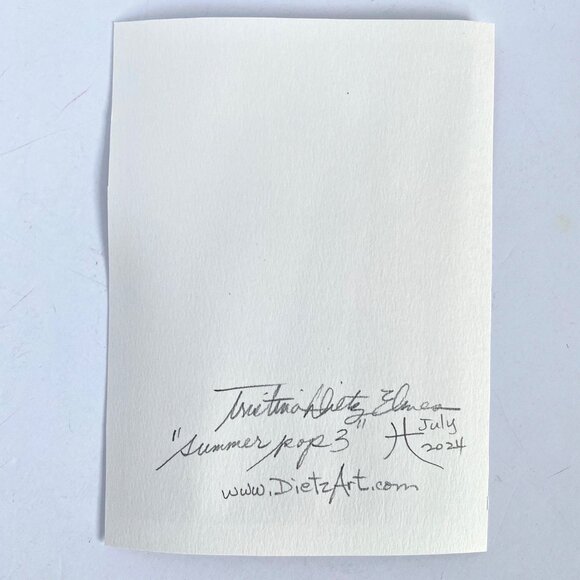 Tristina Dietz Elmes
"summer pop 3" July
2024
www.DietzArt.com